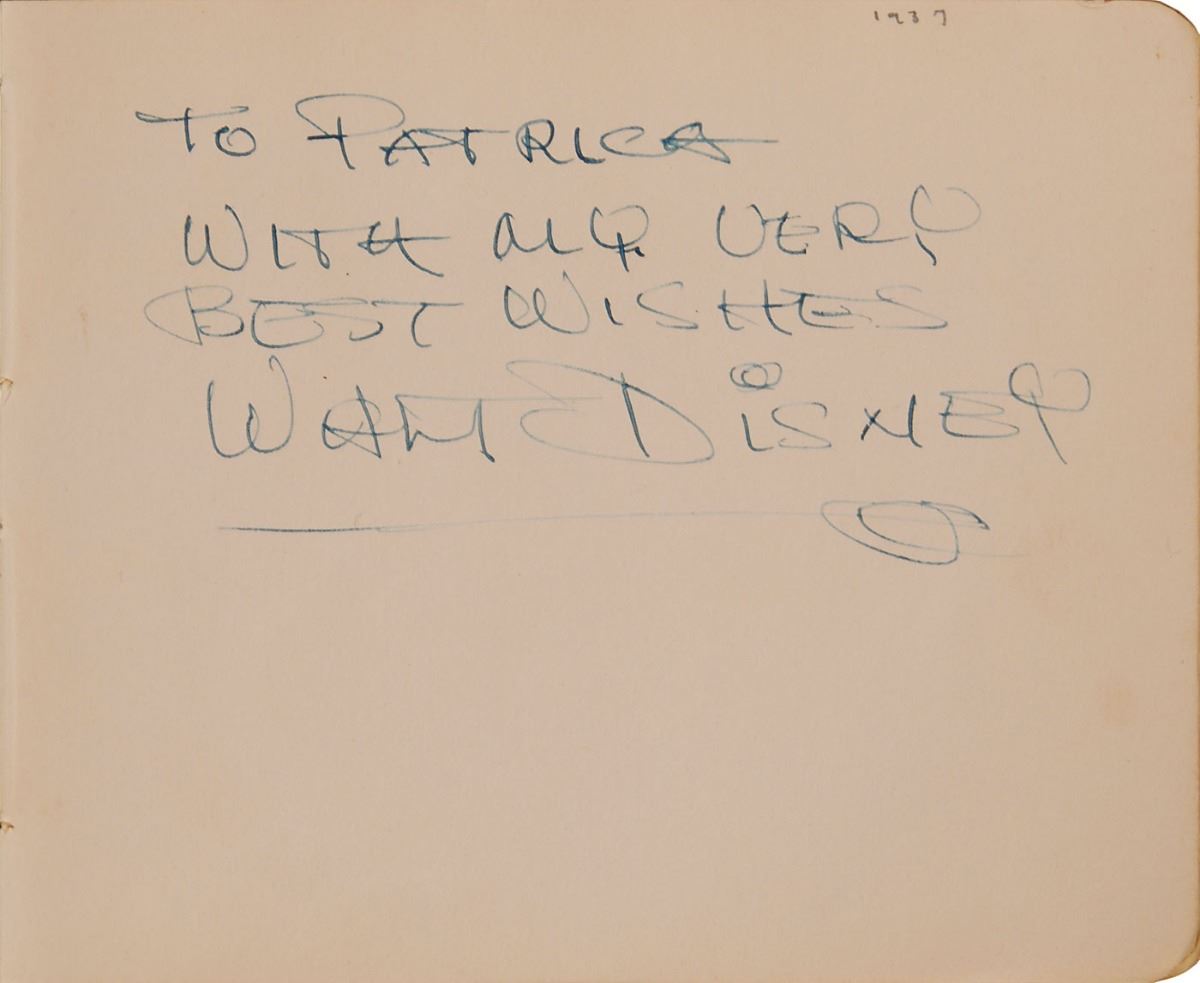 1937
TO PATRICA
WITH MY VERY
BEST WISHES
WALT DISNEY